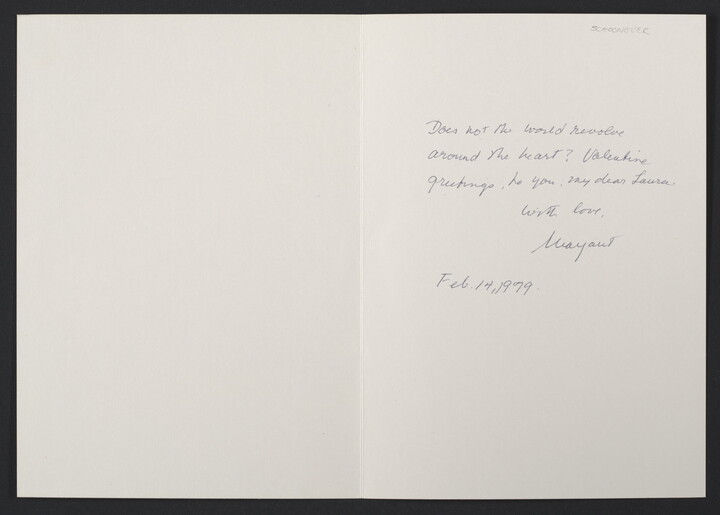 SCHOONOVER
Does not the world revolve
around the heart? Valentine
greetings, to you, my dear Laura
With love,
Margaret
Feb. 14, 1979.